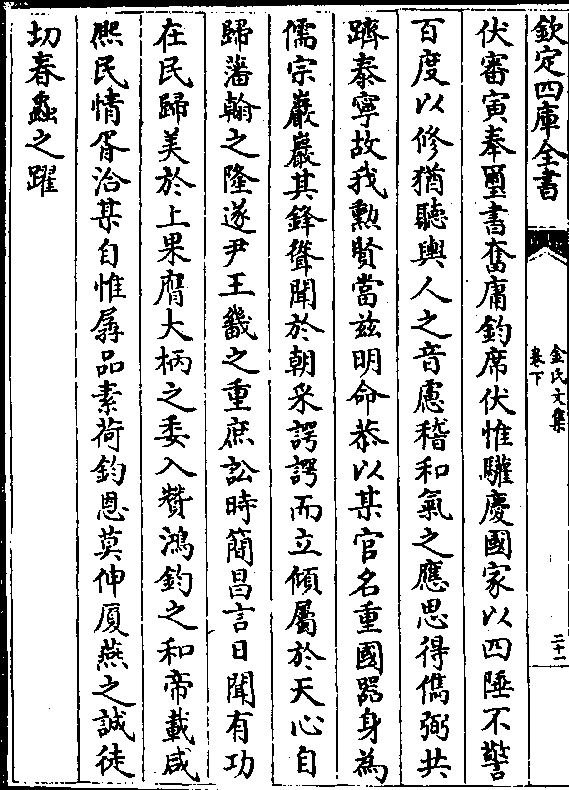 欽定四庫全書
金氏文集
卷下
二十一
伏審寅奉璽書奮庸鈞席伏惟驩慶國家以四陲不警
百度以修猶聽輿人之音慮稽和氣之應思得儁弼共
躋泰寧故我勲賢當兹明命恭以某官名重國器身為
儒宗巖巖其鋒聳聞於朝采諤諤而立傾屬於天心自
歸藩翰之隆遂尹王畿之重庶訟時簡昌言日聞有功
在民歸美於上果膺大柄之委入賛鴻鈞之和帝載咸
熈民情胥洽某自惟孱品素荷鈞恩莫伸厦燕之誠徒
切春螽之躍